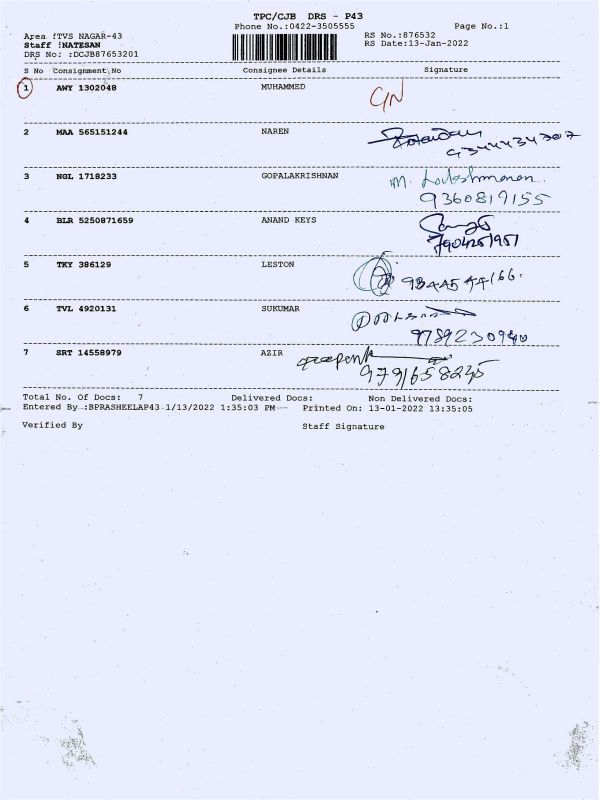 TPC/CJB DRS - P43
Phone No.:0422-3505555 Page No.:1
Area :TVS NAGAR-43 RS No.:876532
Staff :NATESAN RS Date:13-Jan-2022
DRS No: :DCJB87653201
S No Consignment No Consignee Details Signature
1 AWY 1302048 MUHAMMED
2 MAA 565151244 NAREN
3 NGL 1718233 GOPALAKRISHNAN M. Lakshmanan
9360819155
4 BLR 5250871659 ANAND KEYS
7904251951
5 TKY 386129 LESTON 9344544166
6 TVL 4920131 SUKUMAR
9789230940
7 SRT 14558979 AZIR
9791658245
Total No. Of Docs: 7 Delivered Docs: Non Delivered Docs:
Entered By :BPRASHEELAP43 1/13/2022 1:35:03 PM Printed On: 13-01-2022 13:35:05
Verified By Staff Signature